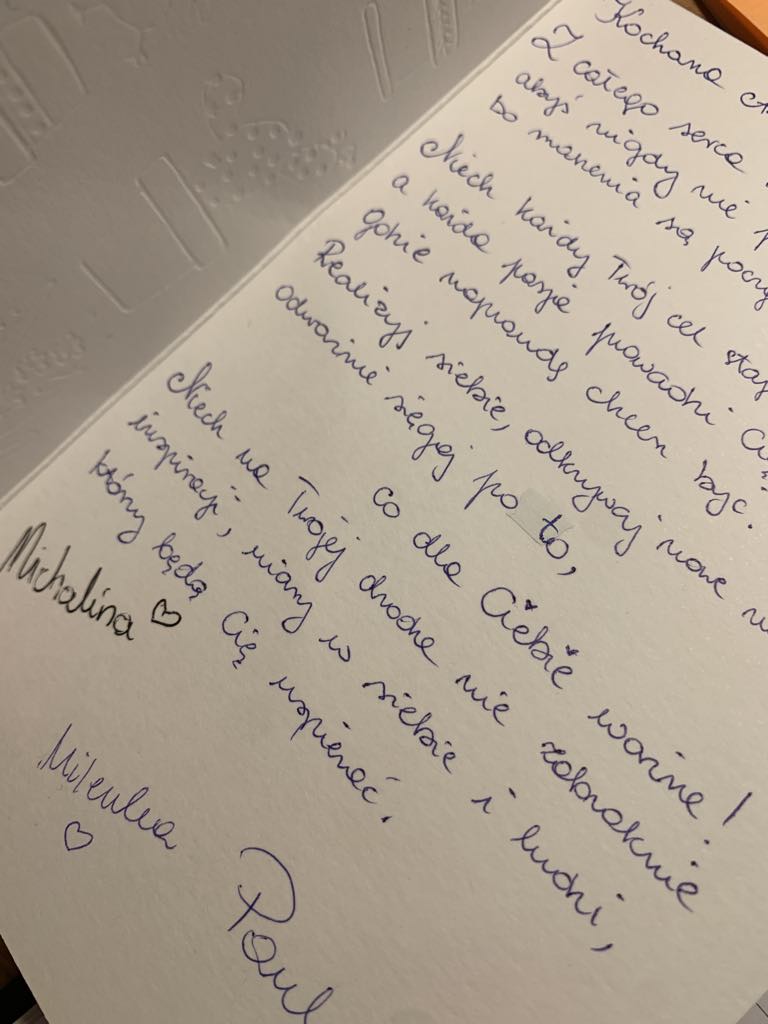 Kochana
Z całego serca
abyś nigdy nie
bo marzenia są
Niech każdy Twój cel
a każda pasja prowadzi
gdzie naprawdę chcesz być.
Realizuj siebie, odkrywaj nowe
odważnie sięgaj po to,
co dla Ciebie ważne!
Niech na Twojej drodze nie zabraknie
inspiracji, wiary w siebie i ludzi,
którzy będą Cię wspierać.
Michalina ♡
Milenka
♡